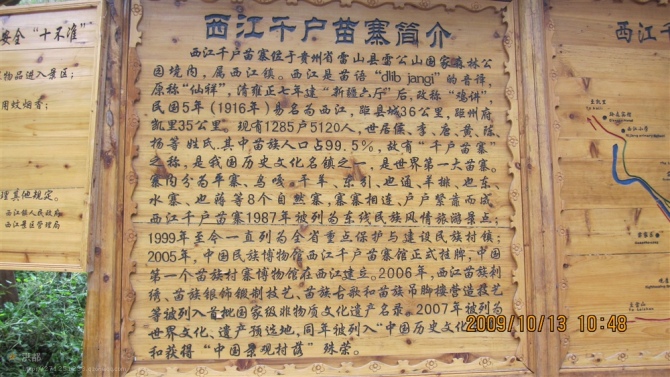 安全“十不准”
物品进入景区；
用蚊烟香；
理其他规定。
西江镇人民政府
西江景区管理局
西江千户苗寨简介
西江千户苗寨位于贵州省雷山县雷公山国家森林公
园境内，属西江镇。西江是苗语“dlib jangl”的音译，
原称“仙祥”，清雍正七年建“新疆六厅”后，改称“鸡讲”，
民国5年（1916年）易名为西江，距县城36公里，距州府
凯里35公里。现有1285户5120人，世居侯、李、唐、黄、陈、
杨等姓氏，其中苗族人口占99.5%，故有“千户苗寨”
之称，是我国历史文化名镇之一，是世界第一大苗寨。
寨内分为平寨、乌嘎、干羊、东引、也通、羊排、也东、
水寨、也薅等8个自然寨，寨寨相连，户户紧凿而成
西江千户苗寨1987年被列为东线民族风情旅游景点；
1999年至今一直列为全省重点保护与建设民族村镇；
2005年，中国民族博物馆西江千户苗寨馆正式挂牌，中国
第一个苗族村寨博物馆在西江建立。2006年，西江苗族刺
绣、苗族银饰锻制技艺、苗族古歌和苗族吊脚楼营造技艺
等被列入首批国家级非物质文化遗产名录。2007年被列为
世界文化、遗产预选地，同年被列入“中国历史文化
和获得“中国景观村落”殊荣。
西江千
2009/10/13 10:48